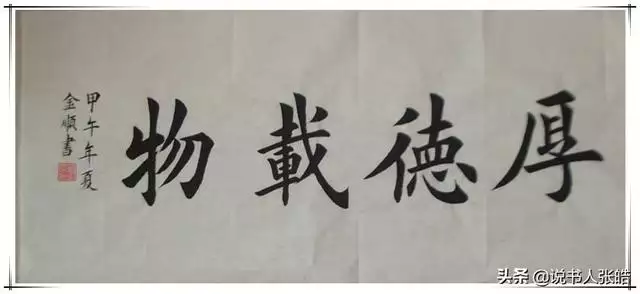 厚德載物
甲午年夏
金順書
头条 @说书人张皓